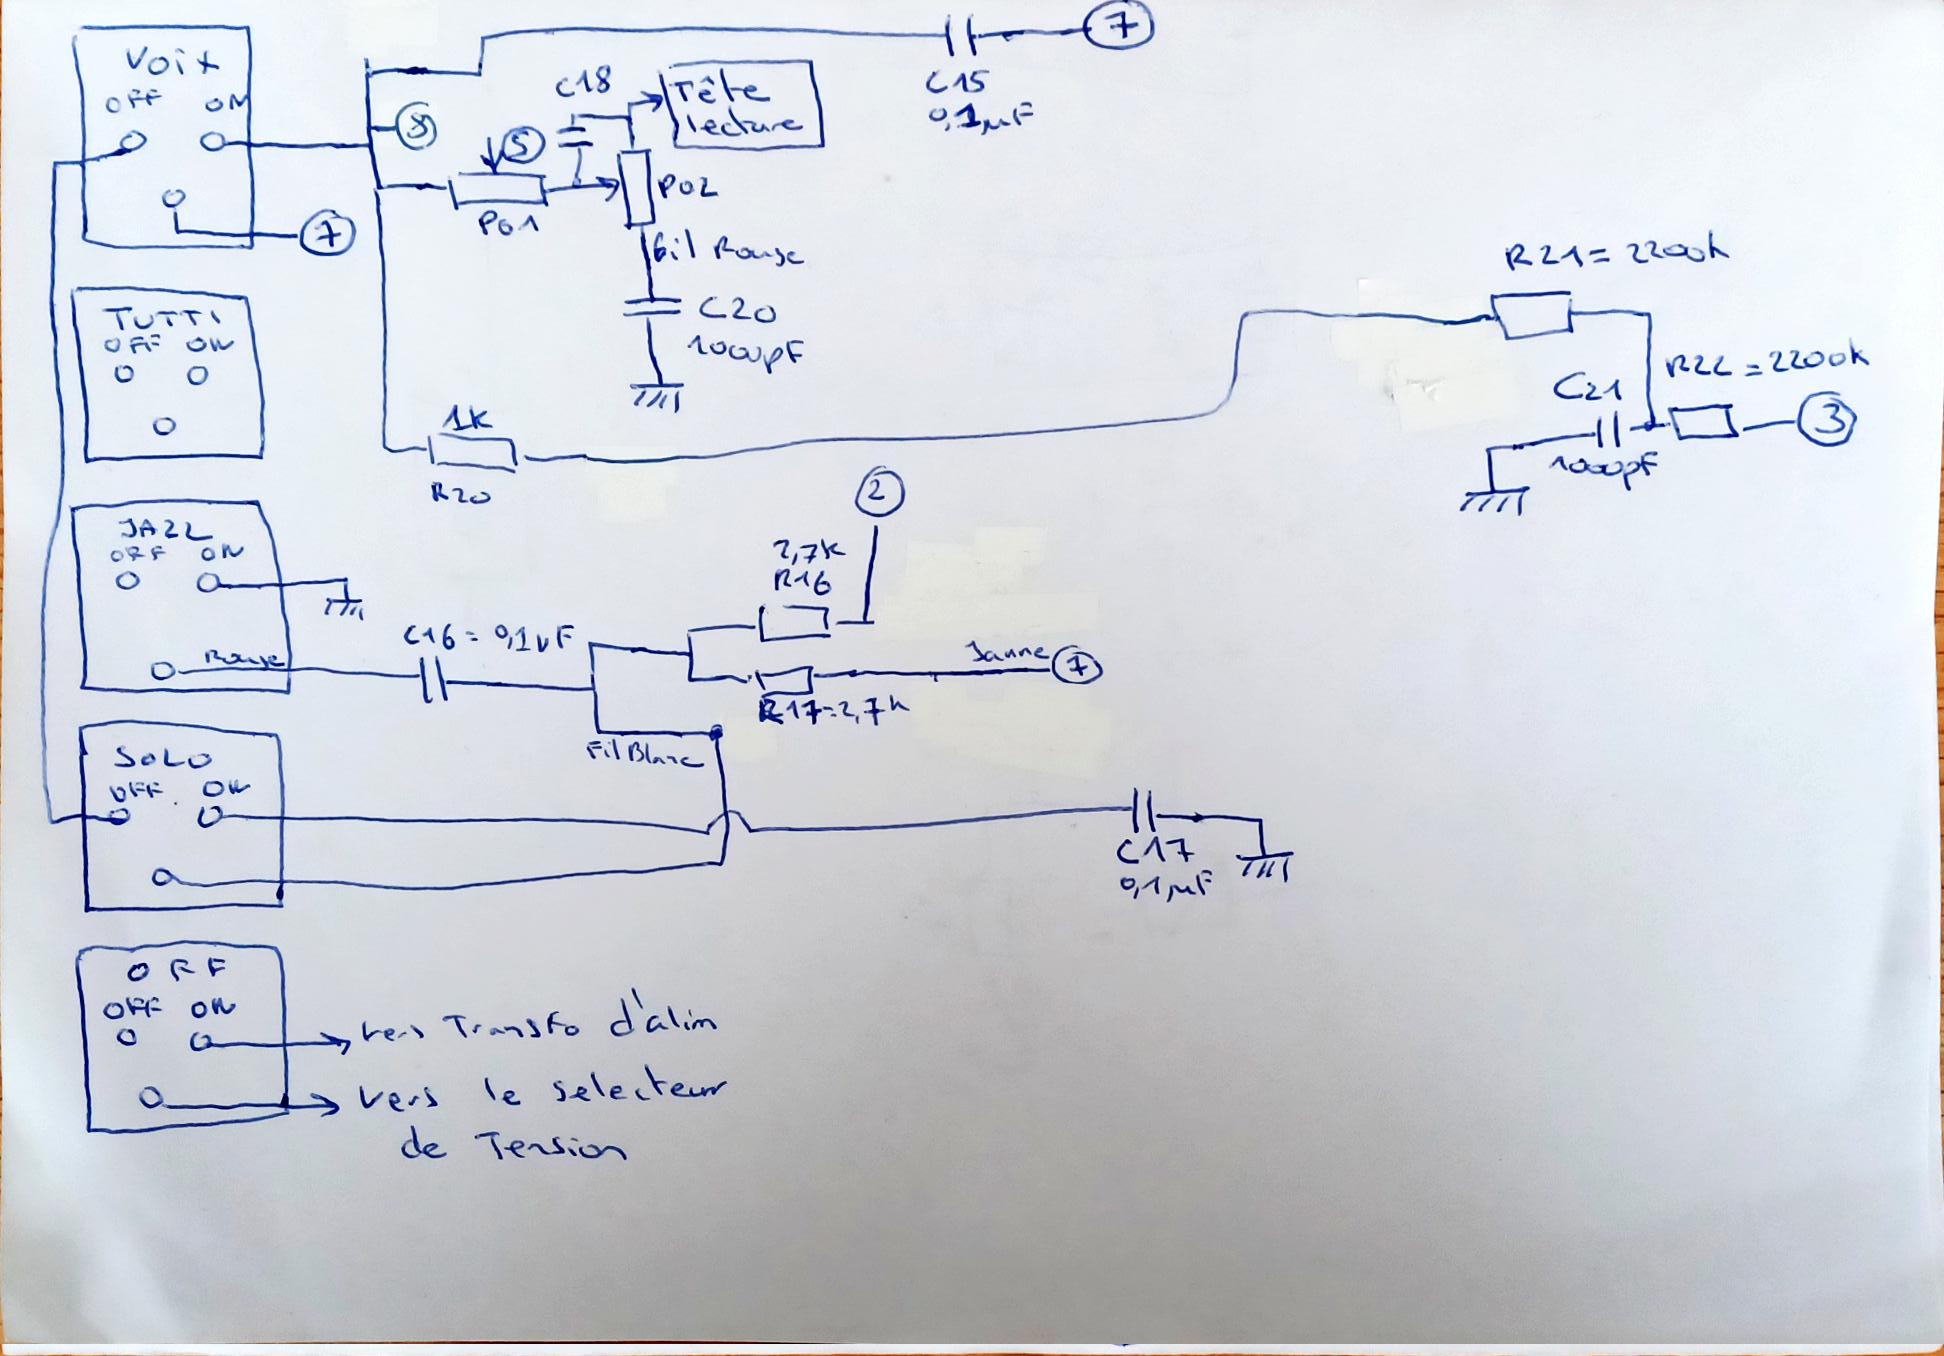 Voix
OFF ON
7
8
5
P01
C18
Tête
lecture
P02
fil Rouge
C20
1000pF
C15
0,1µF
7
TUTTI
OFF ON
1K
R20
R21 = 2200k
R22 = 2200k
C21
1000pF
3
JAZZ
OFF ON
Rouge
C16 = 0,1µF
2
2,7k
R16
Jaune
7
R17=2,7k
Fil Blanc
SOLO
OFF ON
C17
0,1µF
ORF
OFF ON
vers Transfo d'alim
vers le selecteur
de Tension